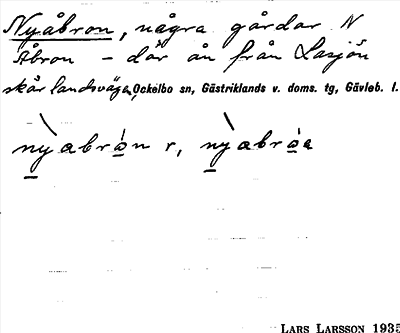 Nyåbron, några gårdar N
Åbron – där ån från Lasjön
skär landsvägen, Ockelbo sn, Gästriklands v. doms. tg, Gävleb. l.
nỳabrȯn r, nỳabrȯa
LARS LARSSON 1935